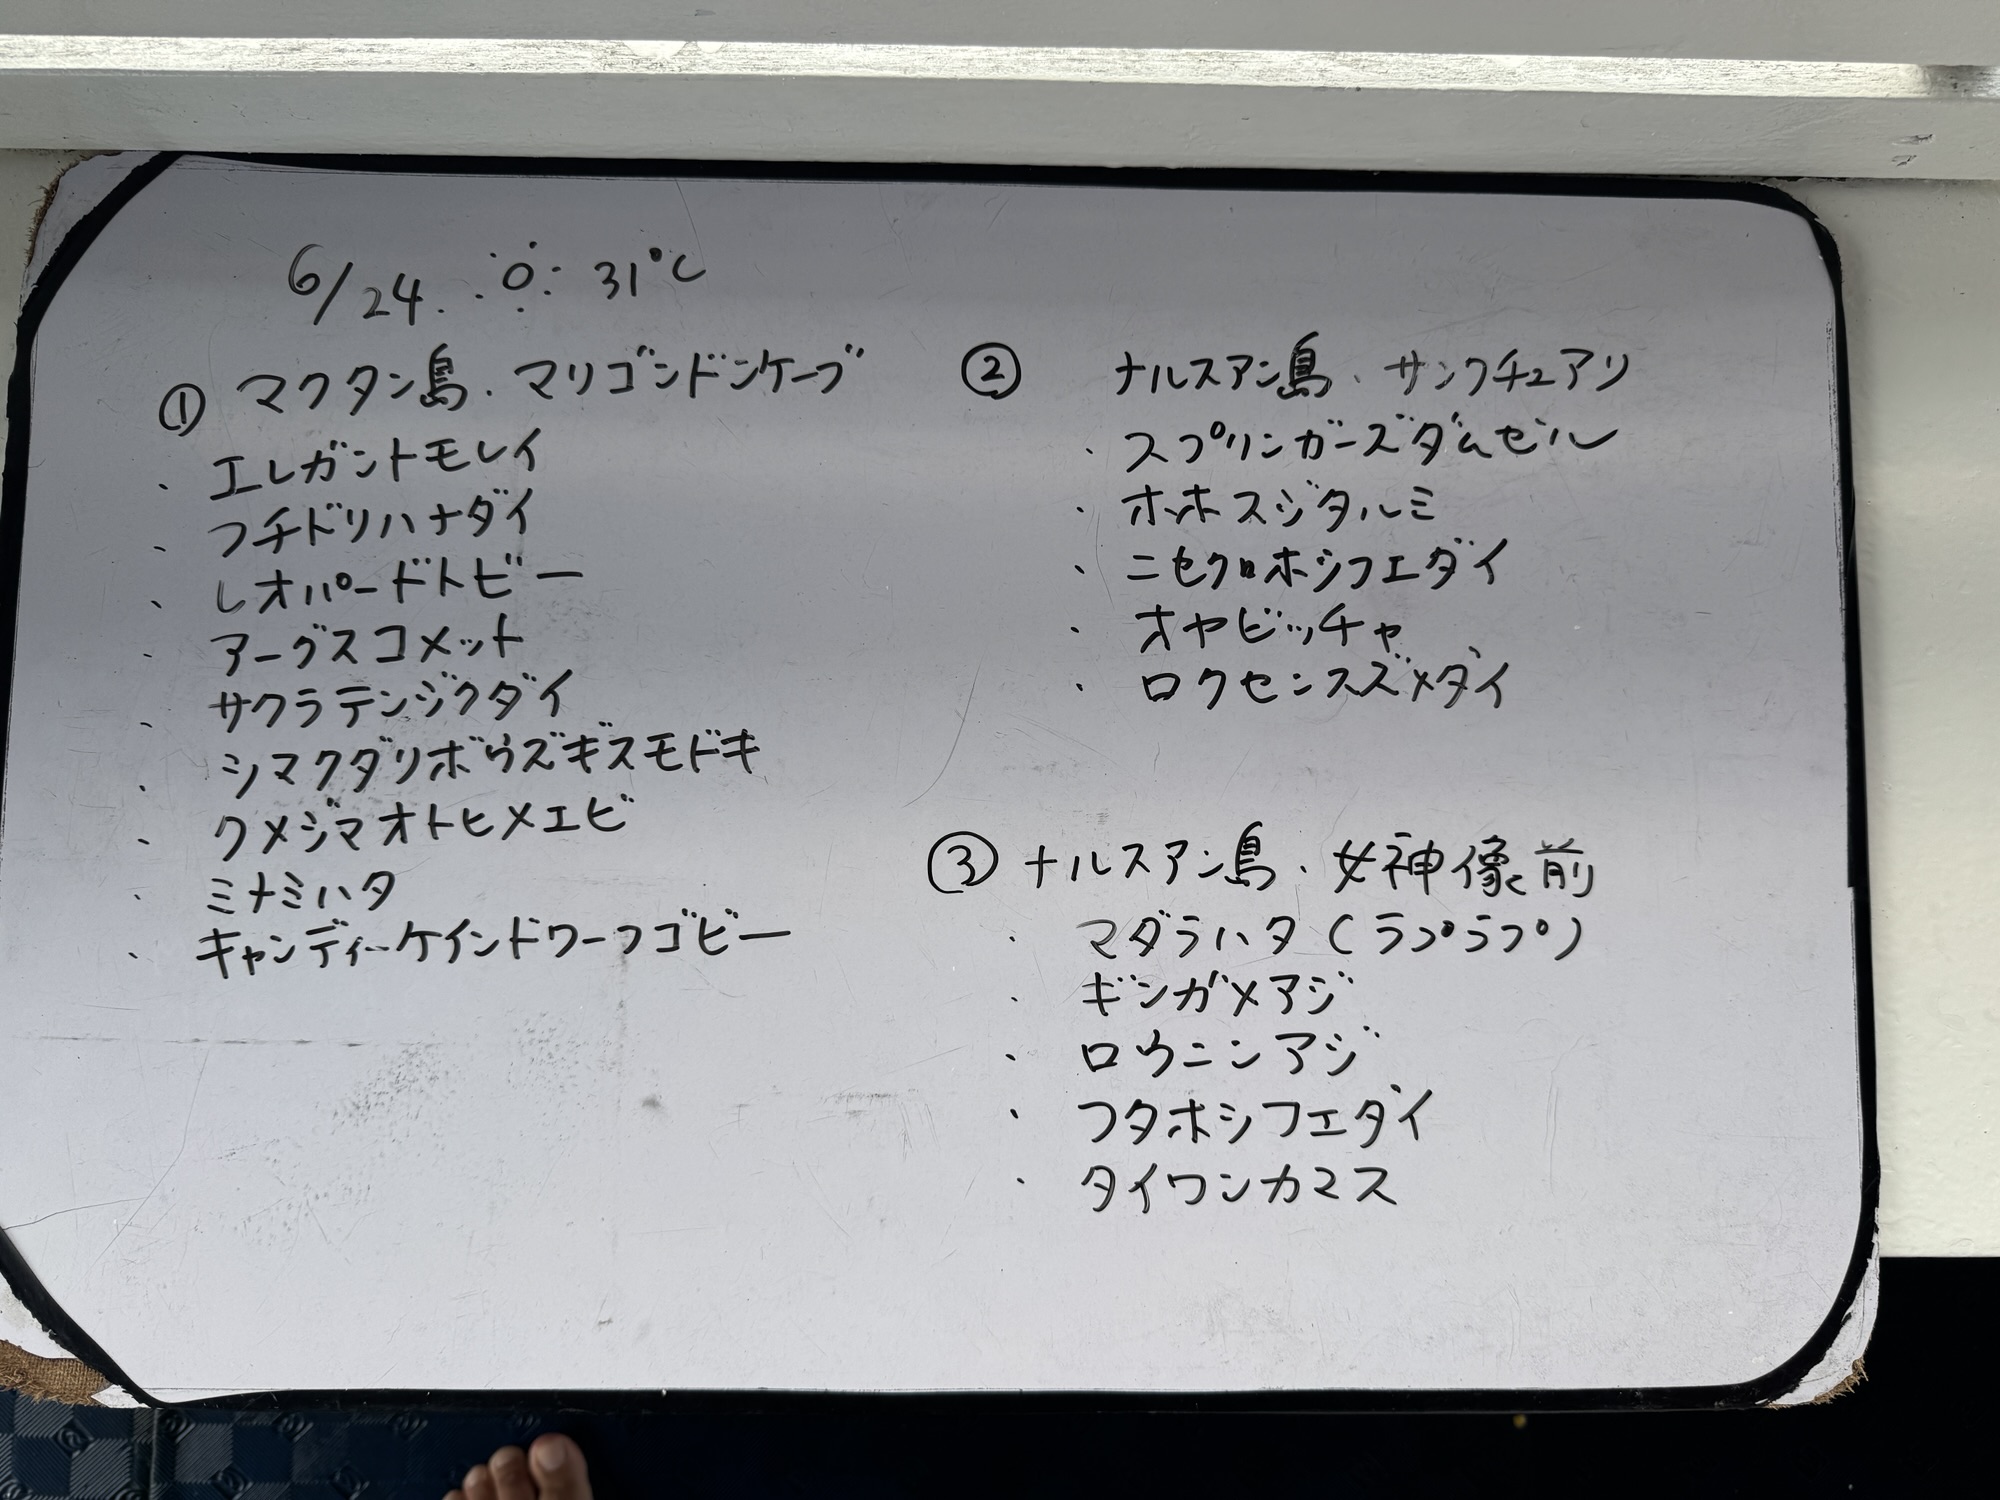 6/24. 31℃
① マクタン島.マリゴンドンケーブ
・エレガントモレイ
・フチドリハナダイ
・レオパードトビー
・アーグスコメット
・サクラテンジクダイ
・シマクダリボウズギスモドキ
・クメジマオトヒメエビ
・ミナミハタ
・キャンディーケインドワーフゴビー
② ナルスアン島、サンクチュアリ
・スプリンガーズダムセル
・ホホスジタルミ
・ニセクロホシフエダイ
・オヤビッチャ
・ロクセンスズメダイ
③ ナルスアン島、女神像前
・マダラハタ(ラプラプ)
・ギンガメアジ
・ロウニンアジ
・フタホシフエダイ
・タイワンカマス